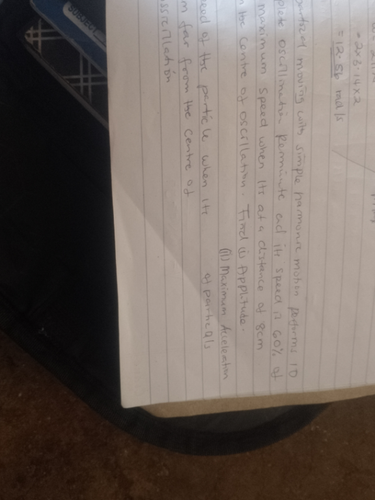 = 2×3.14×2
= 12.56 rad/s
moving with simple harmonic motion performs 10
oscillation perminute and its speed is 60% of
maximum speed when its at a distance of 8cm
the centre of oscillation. Find (i) Applitude.
(ii) Maximum Acceleration
of particals
of the particle when its
far from the centre of